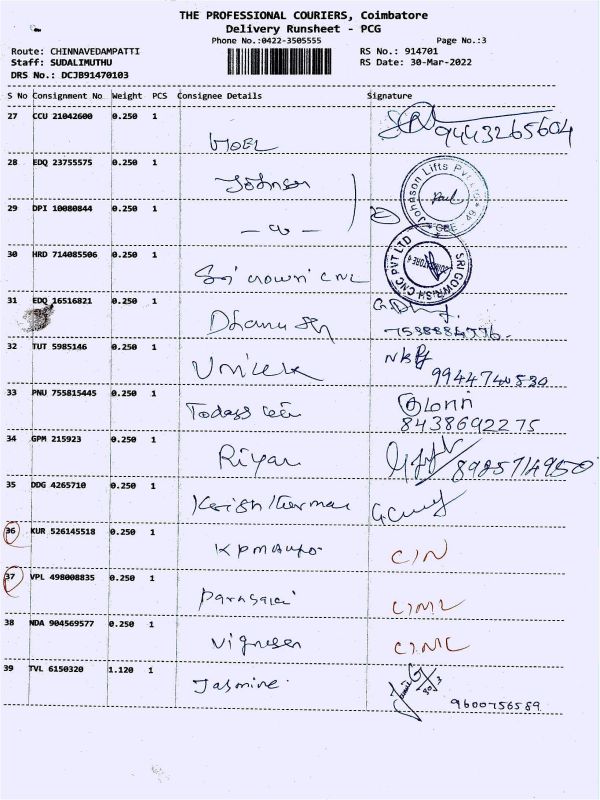 THE PROFESSIONAL COURIERS, Coimbatore
Delivery Runsheet - PCG
Phone No.:0422-3505555 Page No.:3
Route: CHINNAVEDAMPATTI RS No.: 914701
Staff: SUDALIMUTHU RS Date: 30-Mar-2022
DRS No.: DCJB91470103
S No Consignment No Weight PCS Consignee Details Signature
27 CCU 21042600 0.250 1
9443265604
28 EDQ 23755575 0.250 1
Johnson
Johnson Lifts Pvt Ltd
CBE
29 DPI 10080844 0.250 1
30 HRD 714085506 0.250 1
Sri crown CNC
SRI GOWRISH CNC PVT LTD
31 EDQ 16516821 0.250 1
Dhanush
7538884776
32 TUT 5985146 0.250 1
9944740830
33 PNU 755815445 0.250 1
8438692275
34 GPM 215923 0.250 1
Riyan
8925714950
35 DDG 4265710 0.250 1
36 KUR 526145518 0.250 1
37 VPL 498008835 0.250 1
38 NDA 904569577 0.250 1
39 TVL 6150320 1.120 1
Jasmine
9600756589